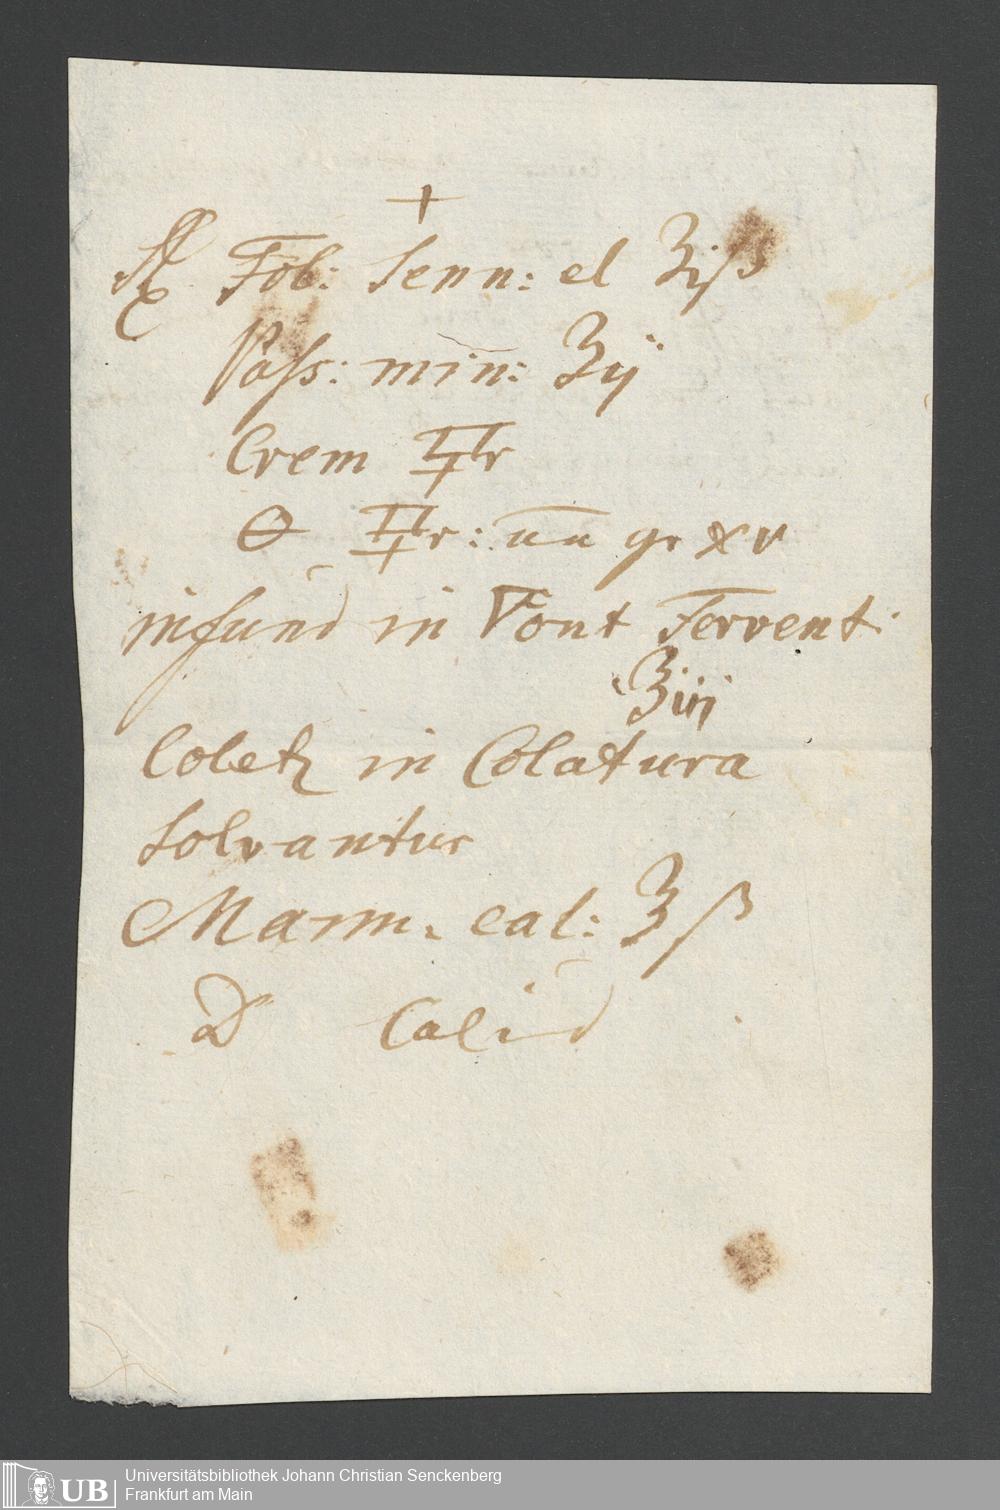 +
℞ Fol: Senn: el ʒiß
Pass: min: ʒij
Crem 🜿r
🜔 🜿r: ana gr xv
infund in Font Fervent:
℥iij
Coletz in Colatura
Solvantur
Mann. cal: ℥ß
D Calid
UB
Universitätsbibliothek Johann Christian Senckenberg
Frankfurt am Main